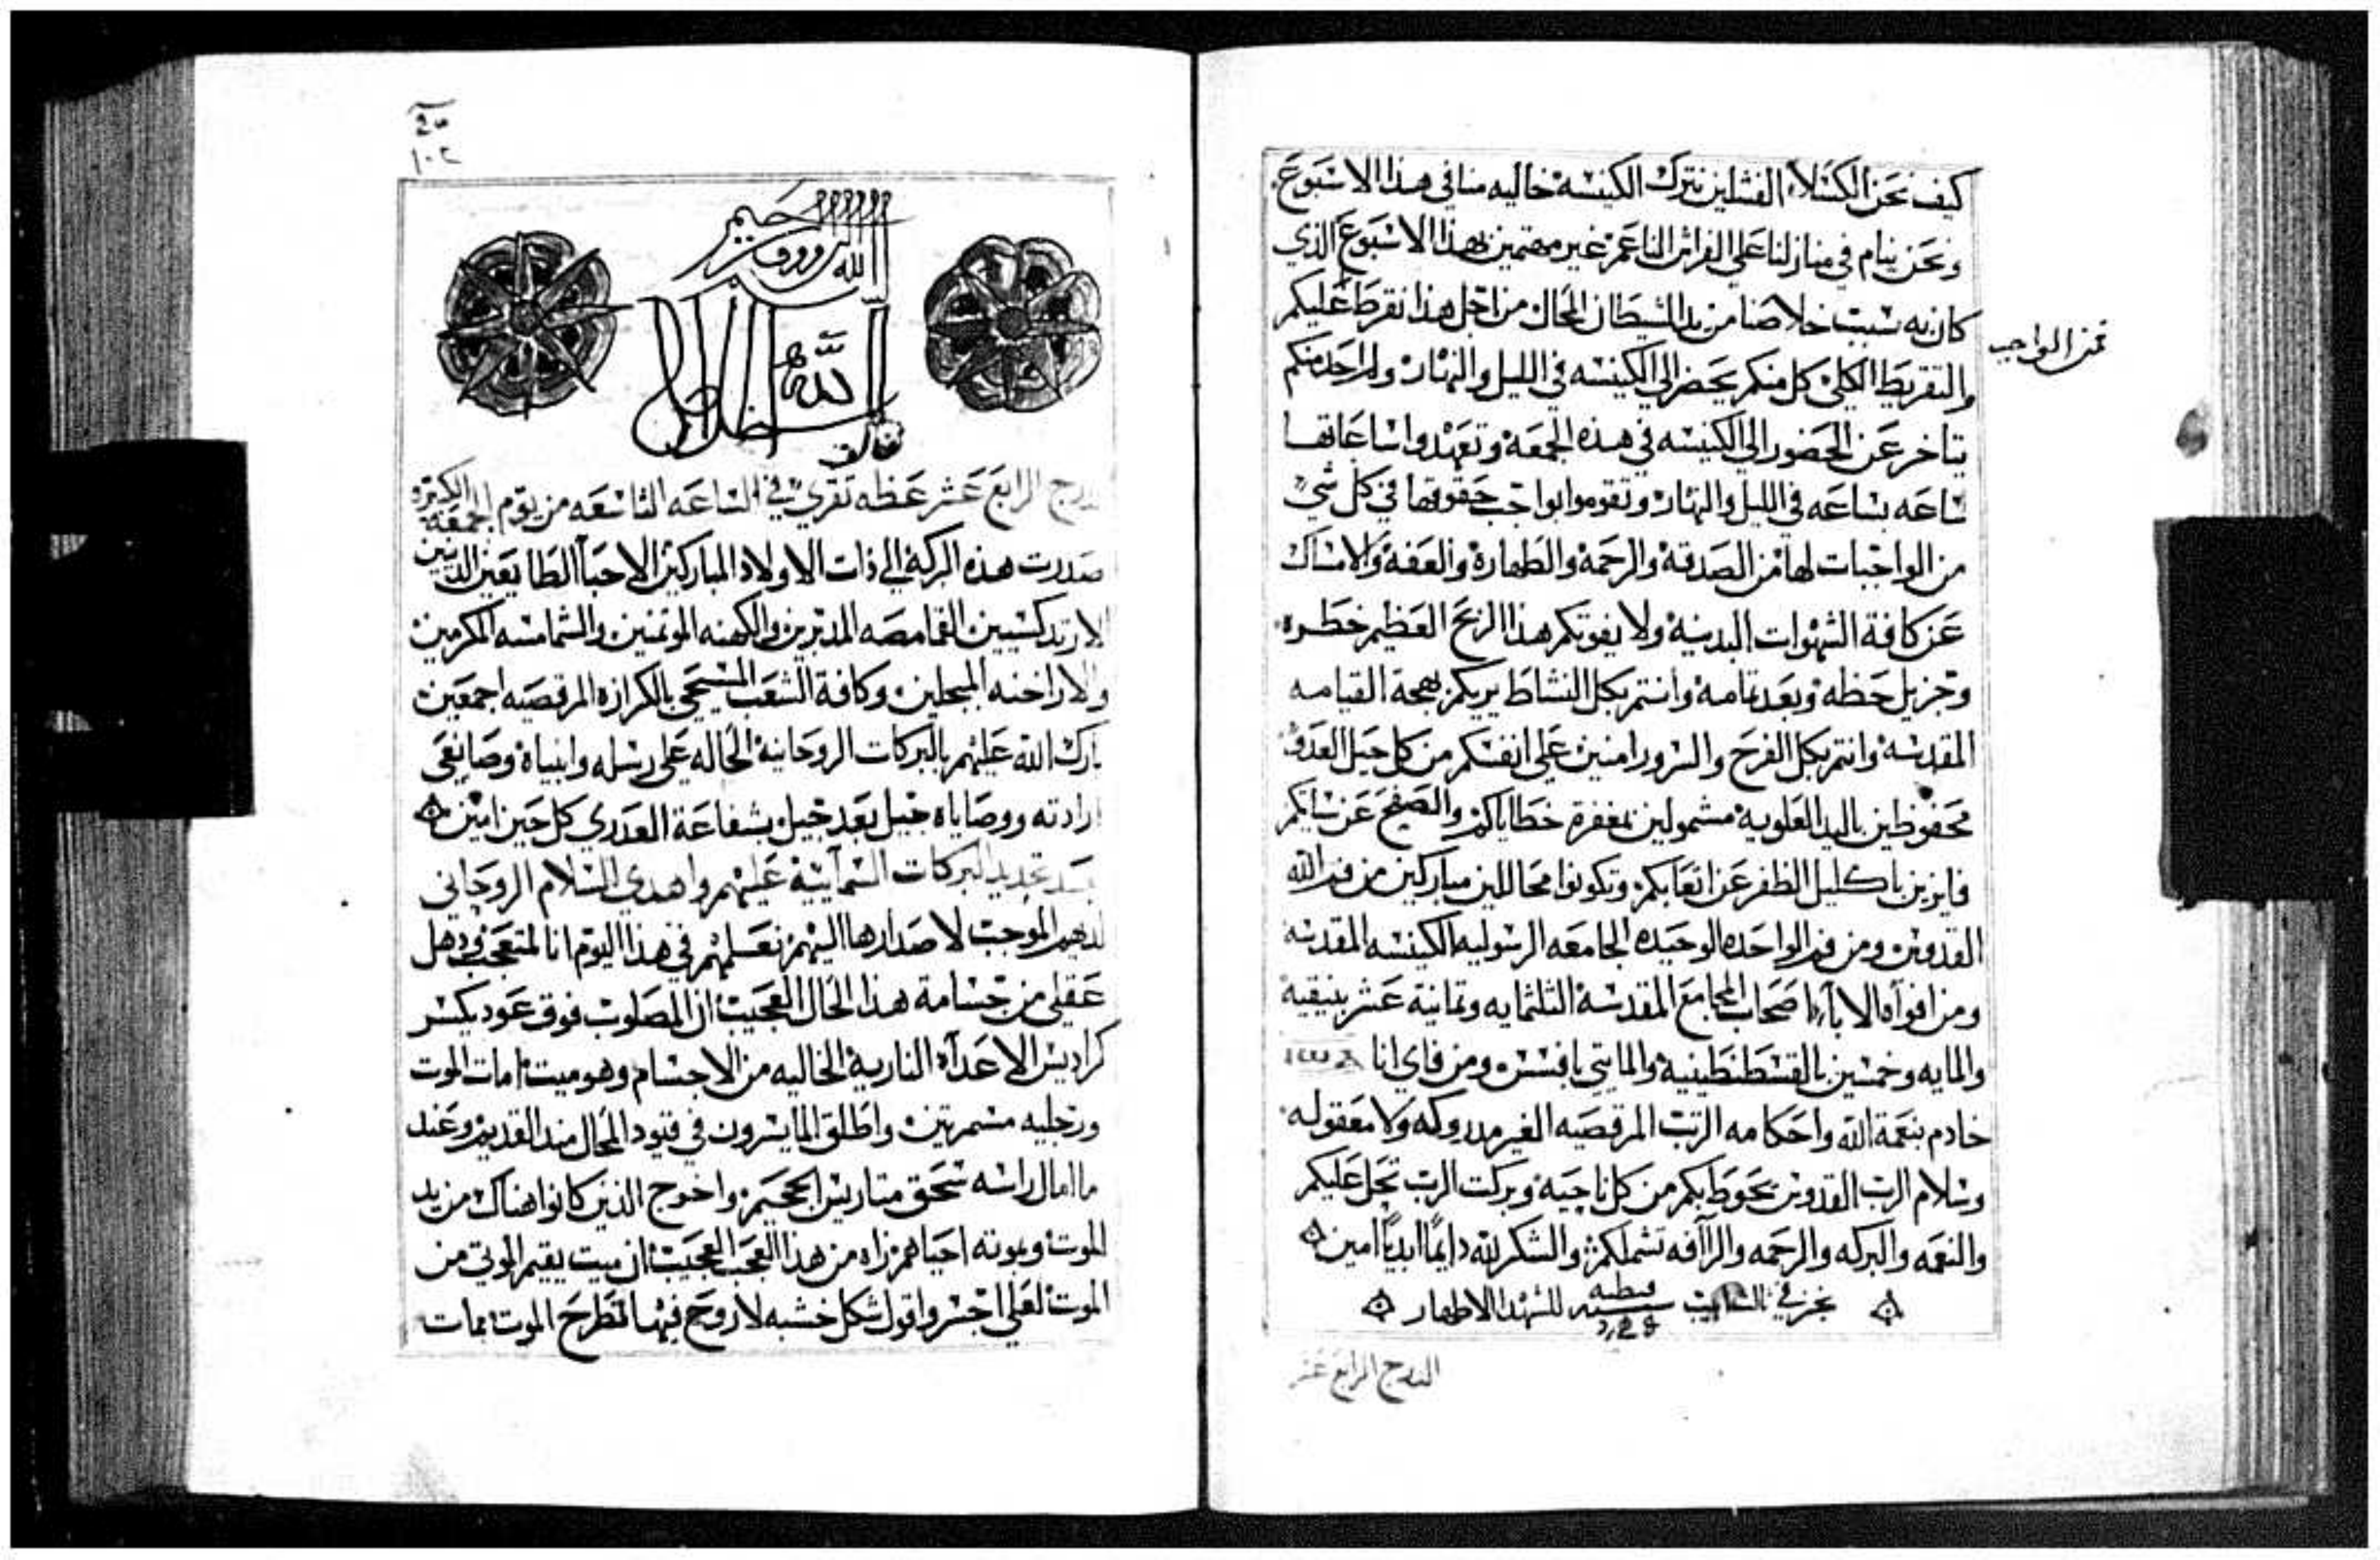 كيف نحن الكسلاء الفشلين نترك الكنيسه خاليه منا في هذا الاسبوع
ونحن ينام في منازلنا علي الفراش الناعم غير مهتمين بهذا الاسبوع الذي
كان به سبب خلاصنا من يد الشيطان المحال من اجل هذا نفرط عليكم
فمن الواجب
والتفريط الكلي كل منكم يحضر الي الكنيسه في الليل والنهار ولا احد منكم
يتاخر عن الحضور الي الكنيسه في هذه الجمعة وتعبدوا ساعاتها
ساعه بساعه في الليل والنهار وتقوموا بواجب حقوقها في كل شي
من الواجبات لها من الصدقة والرحمة والطهارة والعفة والامساك
عن كافة الشهوات البدنية ولا يفوتكم هذا الربح العظيم خطره
وجزيل حظه وبعد تمامه وانتم بكل النشاط يريكم بهجة القيامه
المقدسة وانتم بكل الفرح والسرور امنين علي انفسكم من كل حيل العدو
محفوظين باليد العلوية مشمولين بمغفرة خطاياكم والصفح عن سياتكم
فايزين باكليل الظفر عن اتعابكم وتكونوا محاللين مباركين من فم الله
القدوس ومن فم الواحده الوحيده الجامعه الرسوليه الكنيسه المقدسه
ومن افواه الاباء اصحاب المجامع المقدسة الثلثمايه وثمانية عشر بنيقية
والمايه وخمسين بالقسطنطينية والمايتي بافسس ومن فاي انا
خادم بنعمة الله واحكامه الرتب المرقصيه الغير مدروكه ولا معقوله
وسلام الرب القدوس يحوط بكم من كل ناحية وبركت الرب تحل عليكم
والنعمه والبركه والرحمه والراافه تشملكم والشكر لله دايماً ابدياً امين
نجز في قبطيه سنه للشهدا الاطهار
الدرج الرابع عشر
١٠٢
الله الرووف الرحيم
الله
الدرج الرابع عشر عظه تقري في الساعه التاسعه من يوم الجمعه الكبيره
صدرت هذه البركة الي ذات الاولاد المباركين الاحبا الطايعين الدينين
الارتدكسيين القمامصه المدبرين والكهنه الموتمنين والشمامسه المكرمين
والاراخنه المبجلين وكافة الشعب المسيحي بالكرازه المرقصيه اجمعين
بارك الله عليهم بالبركات الروحانية الحاله علي رسله وانبياه وصانعي
ارادته ووصاياه جيل بعد جيل بشفاعة العدري كل حين امين
بعد تجديد البركات السمآيية عليهم واهدي السلام الروحاني
لديهم الموجب لاصدارها اليهم نعلمهم في هذا اليوم انا لمتعجب ودهل
عقلي من جسامة هذا الحال العجيب ان المصلوب فوق عود يكسر
كراديس الاعدآه النارية الخاليه من الاجسام وهو ميت امات الموت
ورجليه مسمرتين واطلق المايسرون في قيود المحال مند القديم وعند
ما امال راسه سحق متاريس الجحيم واخرج الذين كانوا هناك من يد
الموت وبموته احياهم زاه من هذا العجب العجيب ان ميت يقيم الموتي من
الموت لعلي اجسر واقول شكل خشبه لا روح فيها تطرح الموت بمات